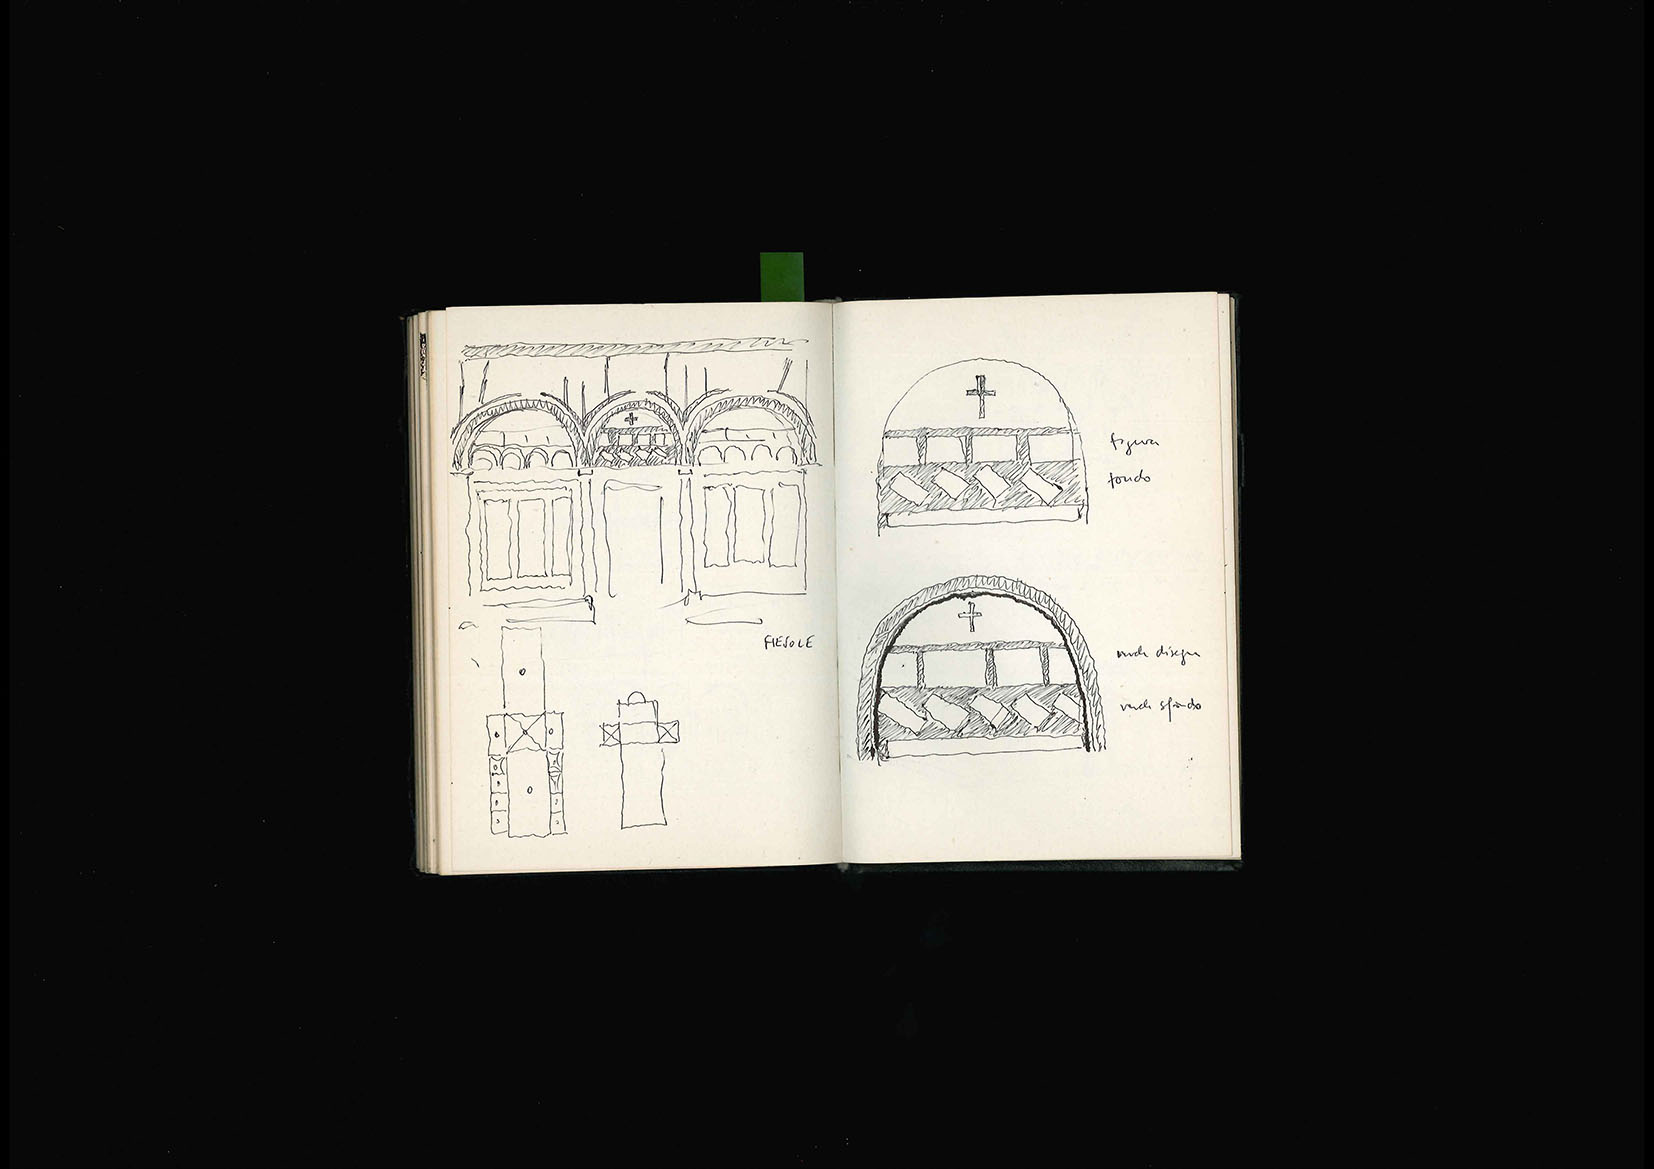 FIESOLE
figura
fondo
verde disegno
verde sfondo